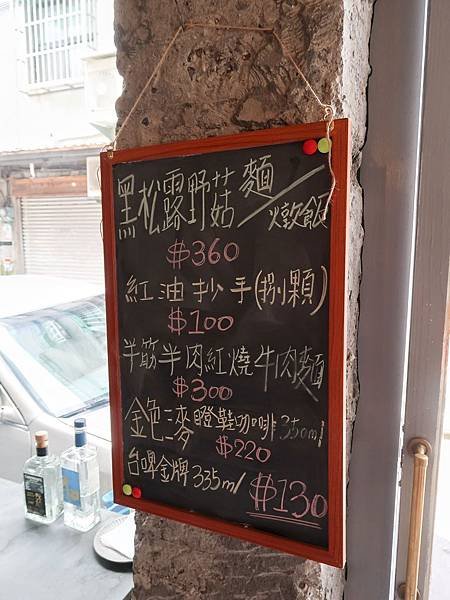 黑松露野菇麵/燉飯
$360
紅油抄手(捌顆)
$100
半筋半肉紅燒牛肉麵
$300
金色三麥蹬鞋咖啡350ml
$220
台啤金牌335ml
$130